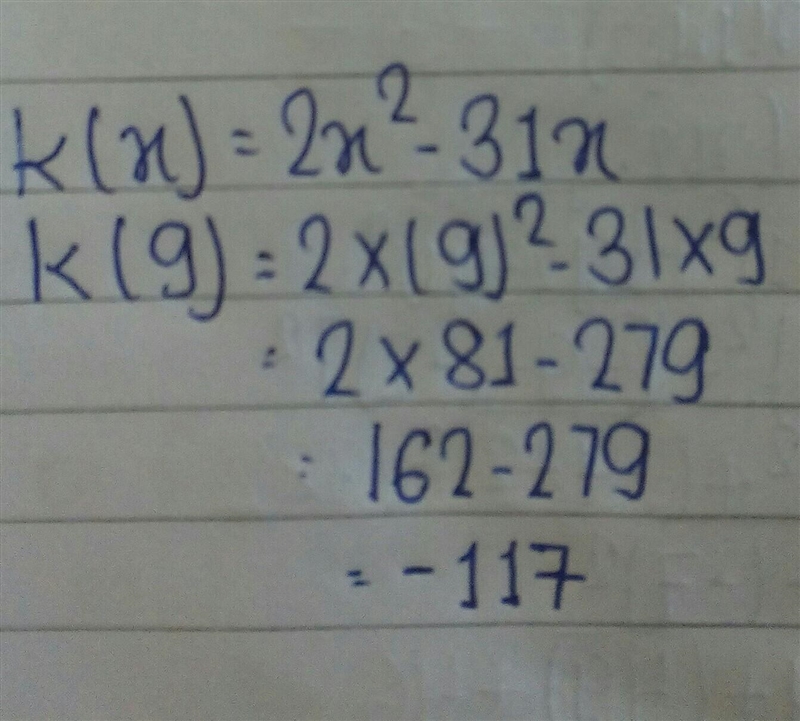 k(x) = 2x² - 31x
k(9) = 2×(9)² - 31×9
= 2 × 81 - 279
= 162 - 279
= -117